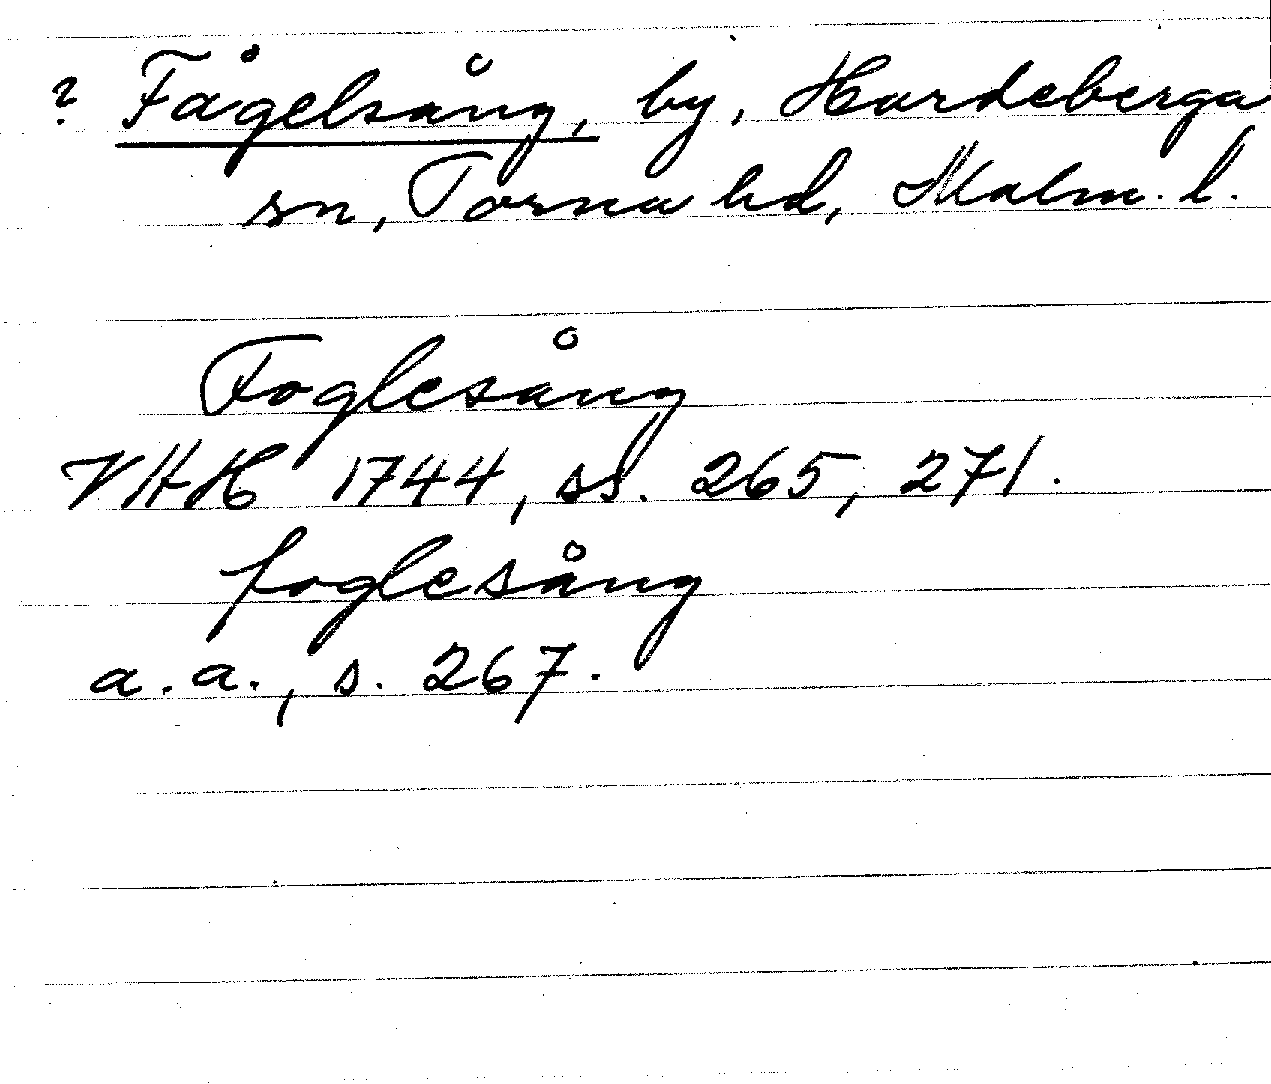 ? Fågelsång, by, Hardeberga
sn, Torna hd, Malm. l.
Foglesång
VHH 1744, ss. 265, 271.
foglesång
a.a., s. 267.